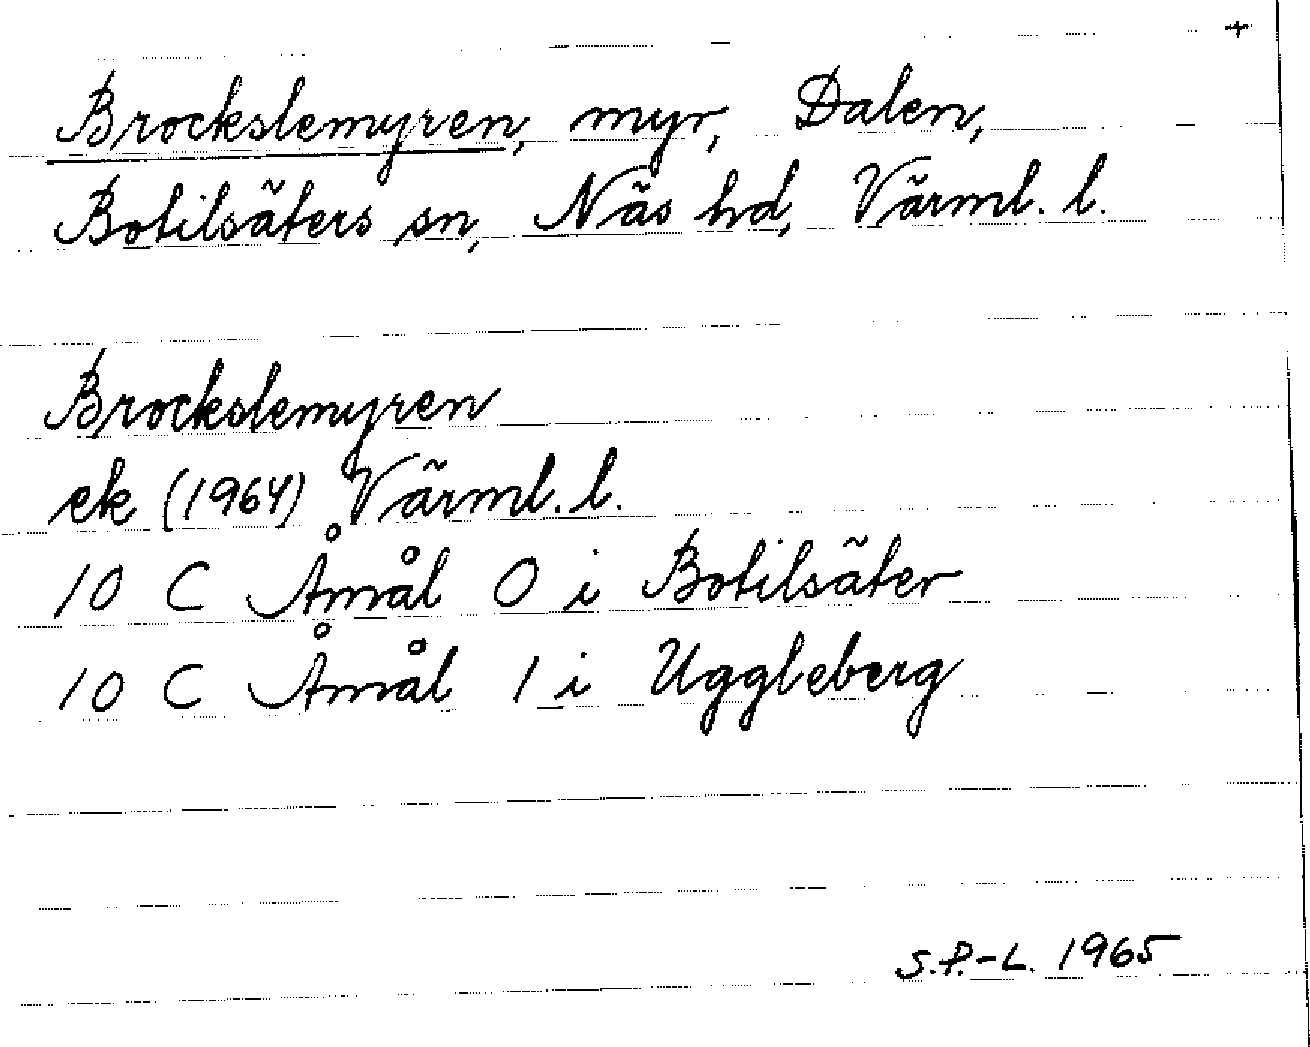 +
Brockslemyren, myr, Dalen,
Botilsäters sn, Näs hd, Värml. l.
Brockslemyren
ek (1964) Värml. l.
10 C Åmål 0 i Botilsäter
10 C Åmål 1 i Uggleberg
S.P.-L. 1965